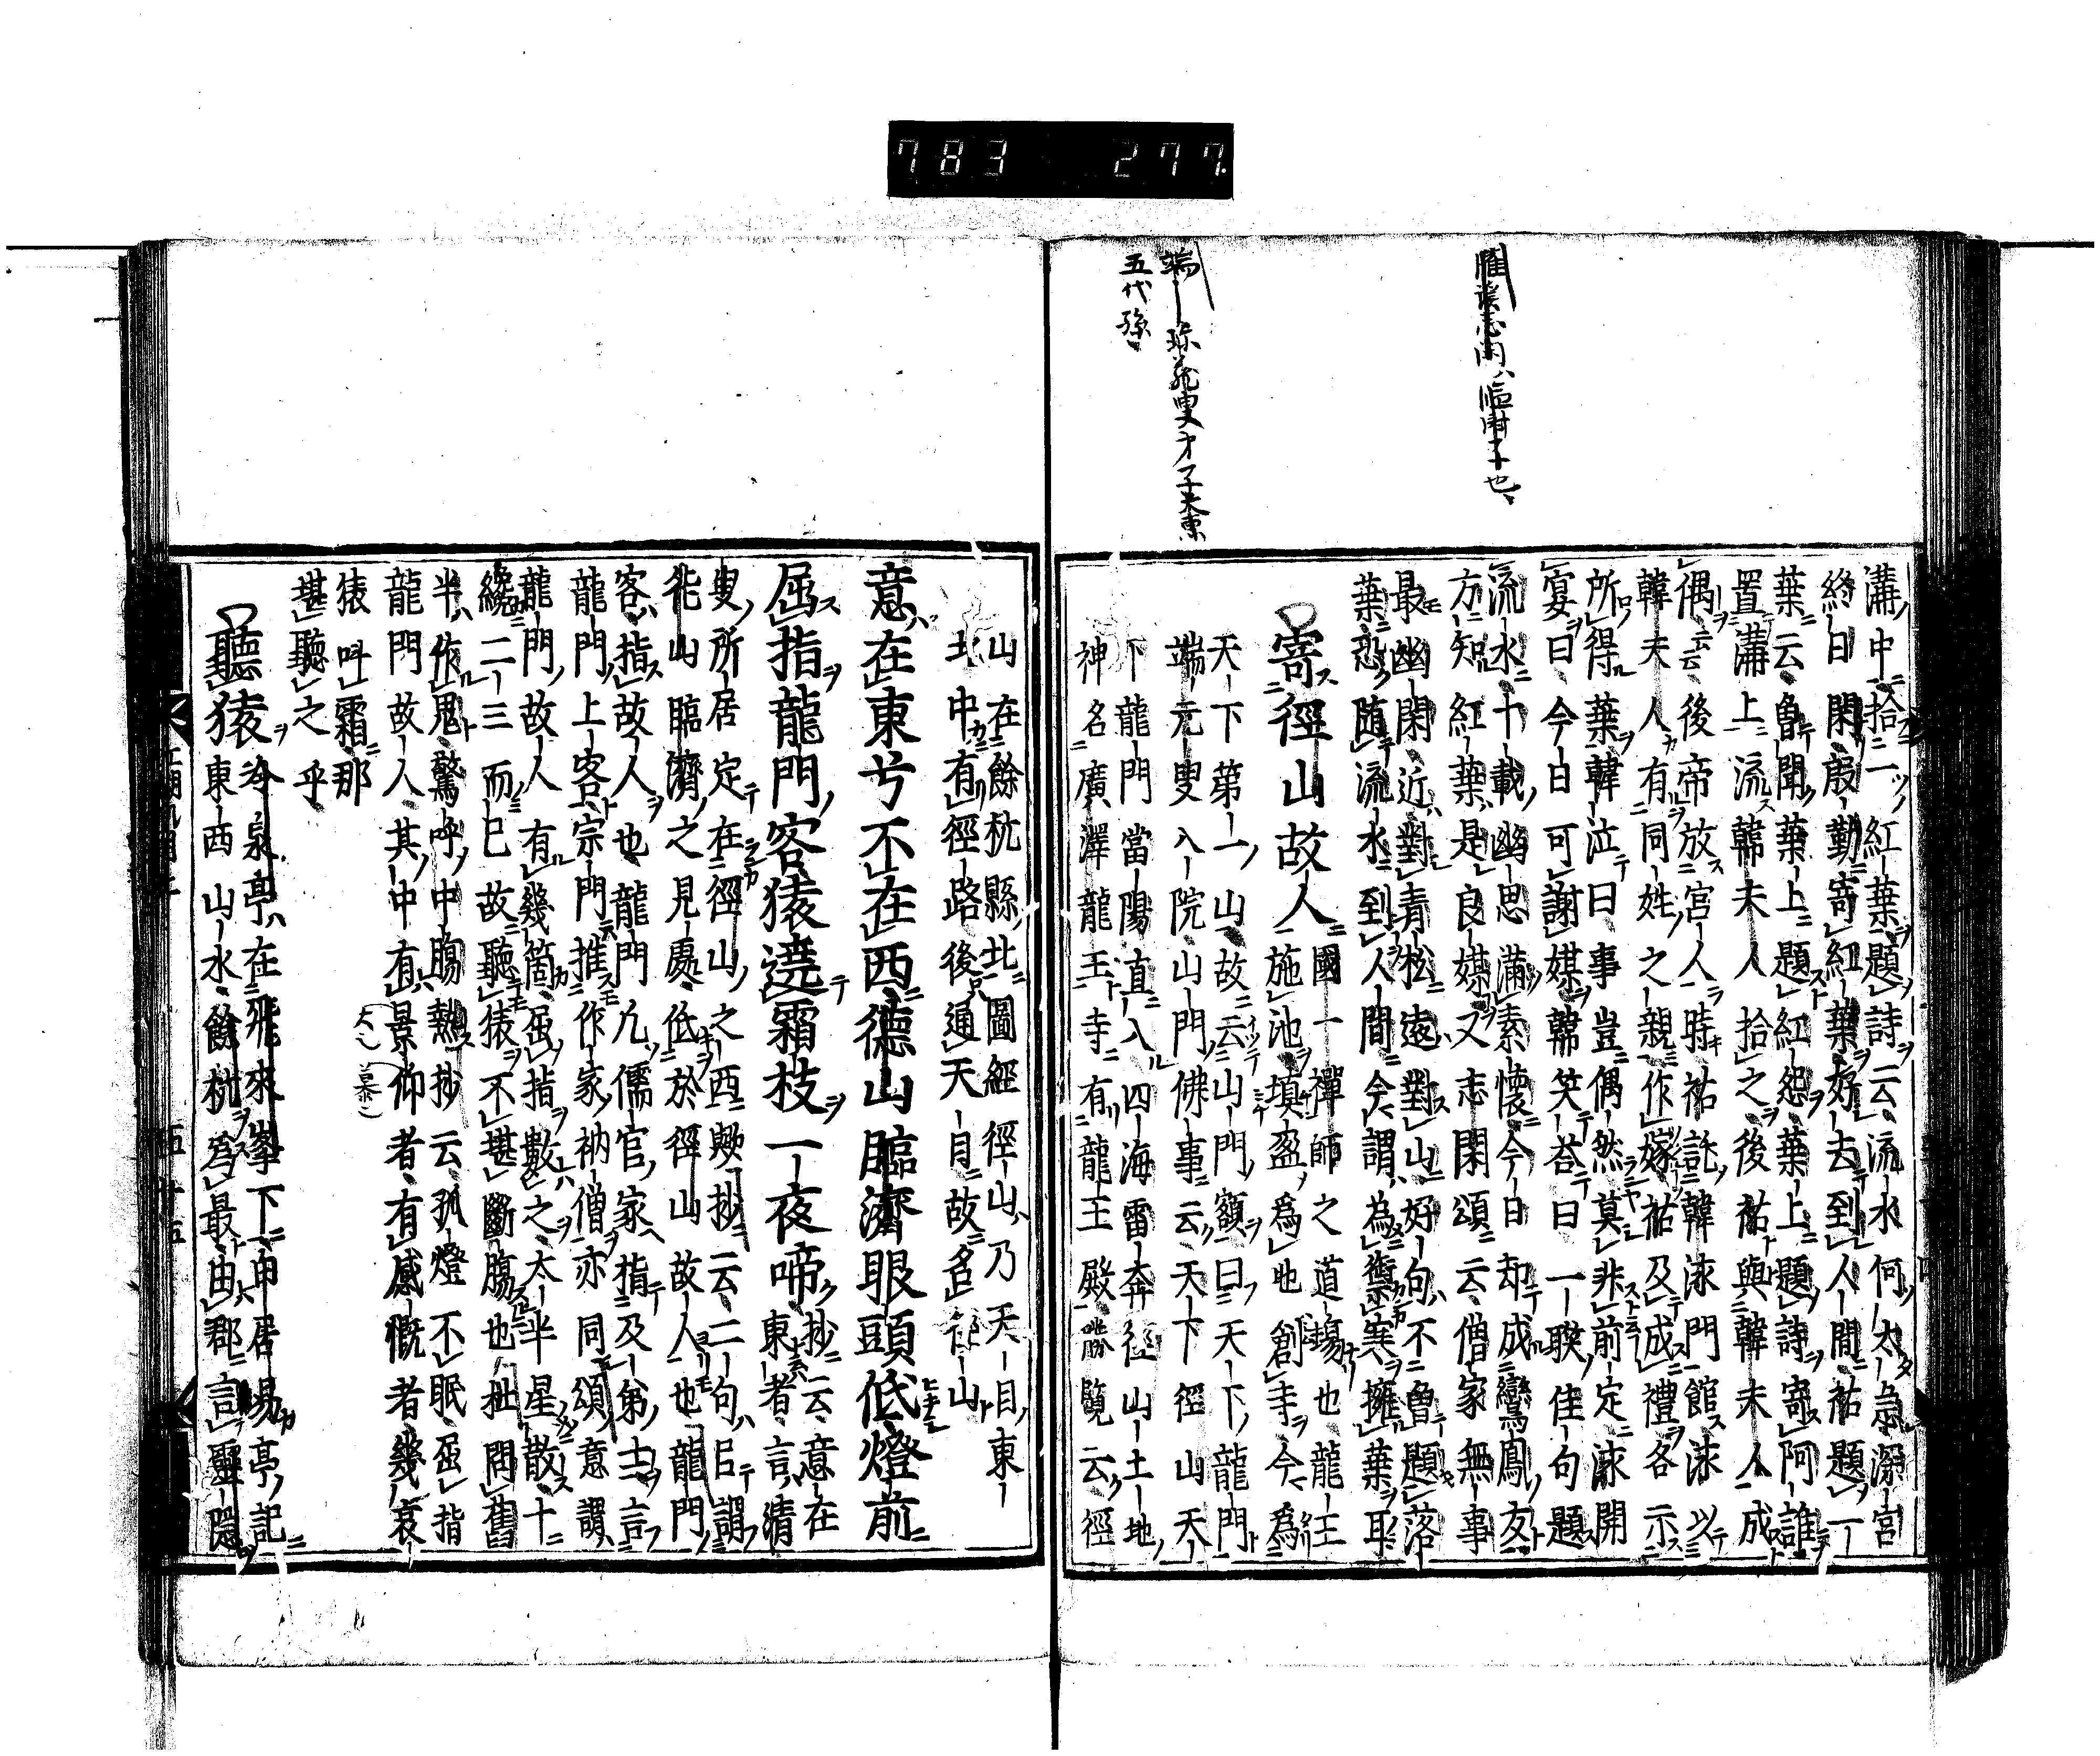 783 277.
溝中拾一紅葉題詩云流水何太急深宮
終日閑殷勤寄紅葉好去到人間祐題一
葉云曽聞葉上題紅怨葉上題詩寄阿誰
置溝上流韓夫人拾之後祐與韓夫人成
偶云云後帝放宮人時祐託韓泳門館泳以
韓夫人有同姓之親作嫁祐及成禮各示
所得葉韓泣曰事豈偶然莫非前定泳開
宴曰今日可謝媒韓笑答曰一聯佳句題
流水十載幽思滿素懷今日却成鸞鳳友
方知紅葉是良媒又志閑頌云僧家無事
最幽閑近對青松遠對山好句不曽題落
葉恐隨流水到人間今謂為禦寒擁葉耳
寄徑山故人國一禪師之道場也龍王
施池填盈為地創寺今為
天下第一山故云山門額曰天下龍門
端元叟入院山門佛事云天下徑山天
下龍門當陽直入四海雷奔徑山土地
神名廣澤龍王寺有龍王殿勝覽云徑
五代孫
山在餘杭縣北圖經徑山乃天目東
北中有徑路後通天目故名徑山
意在東兮不在西德山臨濟眼頭低燈前
屈指龍門客猿遶霜枝一夜啼抄云意在
東者言清
叟所居定在徑山之西歟抄云二句言謂
徳山臨濟之見處低於徑山故人也龍門
客指故人也龍門凡儒官家指及第士言
龍門上客宗門推作家衲僧亦同頌意謂
龍門故人有幾箇屈指數之太半星散十
纔二三而已故聽猿不堪斷腸也拙門舊
半作鬼驚呼中腸熱抄云孤燈不眠屈指
龍門故人其中有景仰者有感慨者幾哀
猿呌霜那
堪聽之乎
聽猿冷泉亭在飛來峯下白居易亭記
東西山水餘杭為最由郡言靈隱
五十五